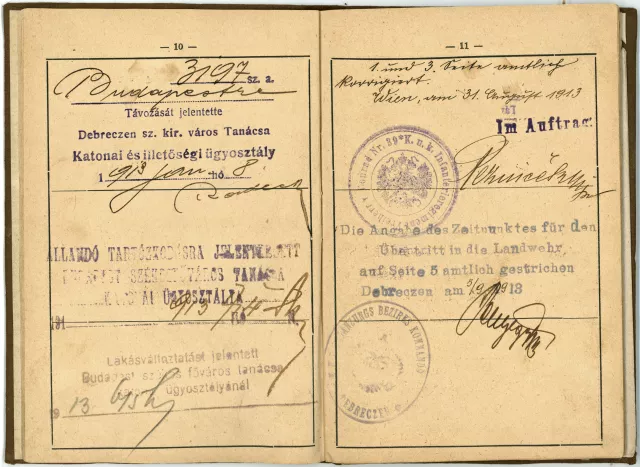 — 10 —
3197 sz. a.
Budapestre
Távozását jelentette
Debreczen sz. kir. város Tanácsa
Katonai és illetőségi ügyosztály
1913 jan hó 8.
ÁLLANDÓ TARTÓZKODÁSRA JELENTKEZETT
BUDAPEST SZÉKESFŐVÁROS TANÁCSA
ÜGYOSZTÁLYA
191
Lakásváltoztatást jelentett
Budapest székes főváros tanácsa
ügyosztályánál
13
— 11 —
1. und 3. Seite amtlich
korrigiert.
Wien, am 31. August 1913
Im Auftrag
K. u. k. Infanterieregiment Nr. 39
Die Angabe des Zeitpunktes für den
Übertritt in die Landwehr,
auf Seite 5 amtlich gestrichen
Debreczen am 5/9 1913
BEZIRKS KOMMANDO
DEBRECZEN